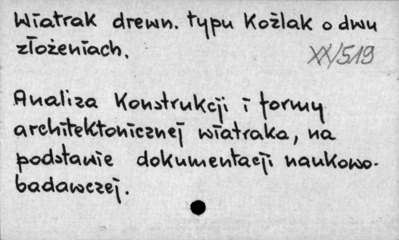 Wiatrak drewn. typu Koźlak o dwu
złożeniach.
XX/519
Analiza Konstrukcji i formy
architektonicznej wiatraka, na
podstawie dokumentacji naukowo-
badawczej.